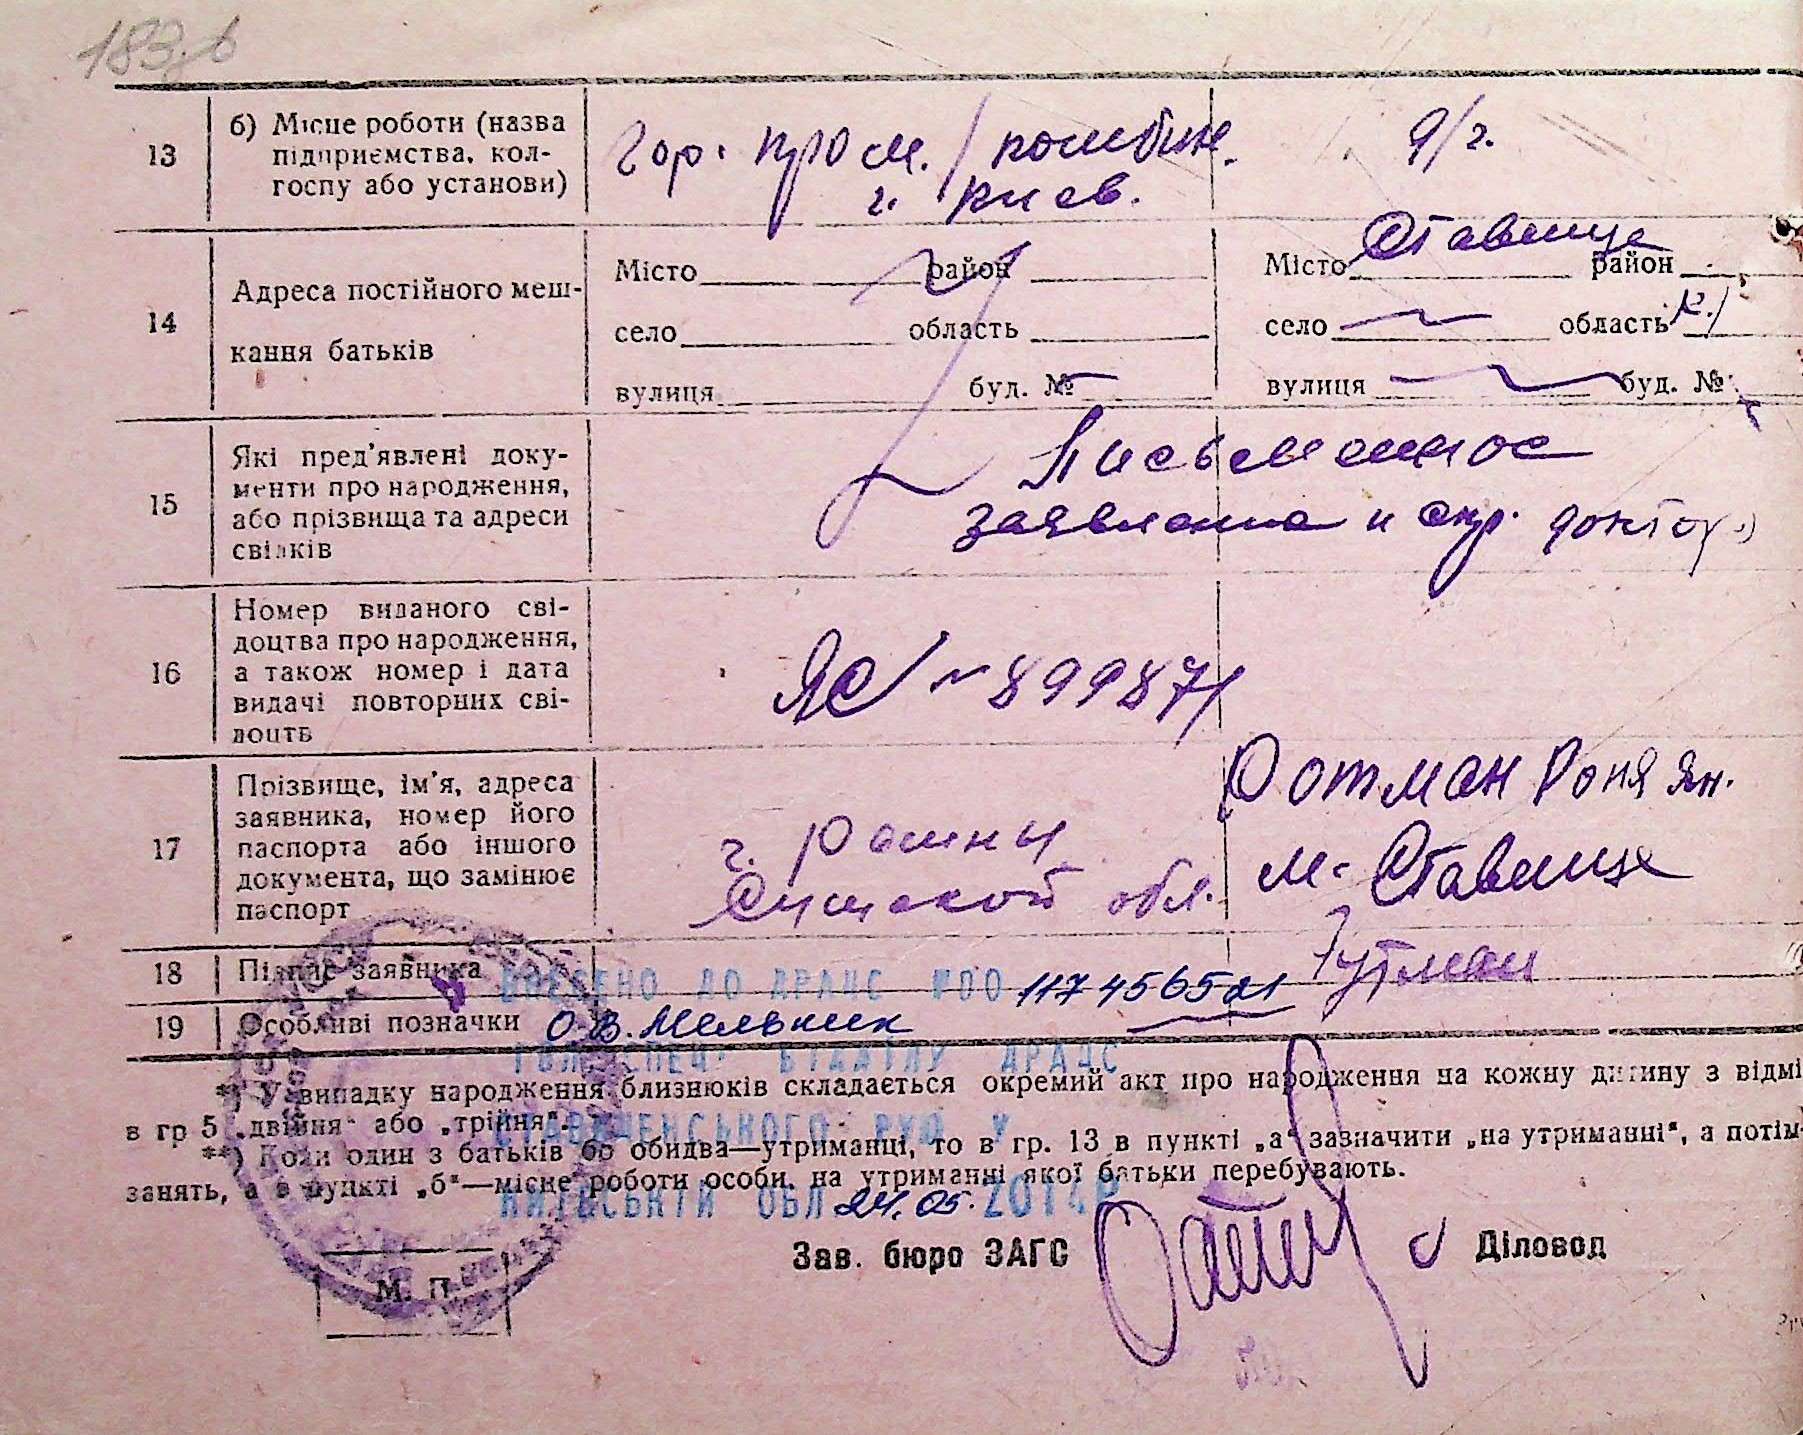 183
13
б) Місце роботи (назва
підприємства, кол-
госпу або установи)
Гор. пром. / комбин.
г. Киев.
14
Адреса постійного меш-
кання батьків
Місто район
село область
вулиця буд. №
Ставище
Місто район
село область К.
вулиця буд. №
15
Які пред'явлені доку-
менти про народження,
або прізвища та адреси
свідків
Письменное
заявление и спр.
16
Номер виданого сві-
доцтва про народження,
а також номер і дата
видачі повторних сві-
доцтв
ЯС № 899871
17
Прізвище, ім'я, адреса
заявника, номер його
паспорта або іншого
документа, що замінює
паспорт
г. Ромны
Сумской обл.
Ротман Роня Ян.
м. Ставище
18
Підпис заявника
ВНЕСЕНО ДО ДРАЦС №00 1174565
19
Особливі позначки
О.В. Мельник
ГОЛ. СПЕЦ. ВІДДІЛУ ДРАЦС
*) У випадку народження близнюків складається окремий акт про народження на кожну дитину з відмі
в гр 5 „двійня“ або „трійня“.
СТАВИЩЕНСЬКОГО РУЮ У
**) Коли один з батьків бо обидва—утриманці, то в гр. 13 в пункті „а“ зазначити „на утриманні“, а потім
занять, а в пункті „б“—місце роботи особи, на утриманні якої батьки перебувають.
КИЇВСЬКІЙ ОБЛ. 24.05. 2014Р
Зав. бюро ЗАГС
Діловод
М. П.